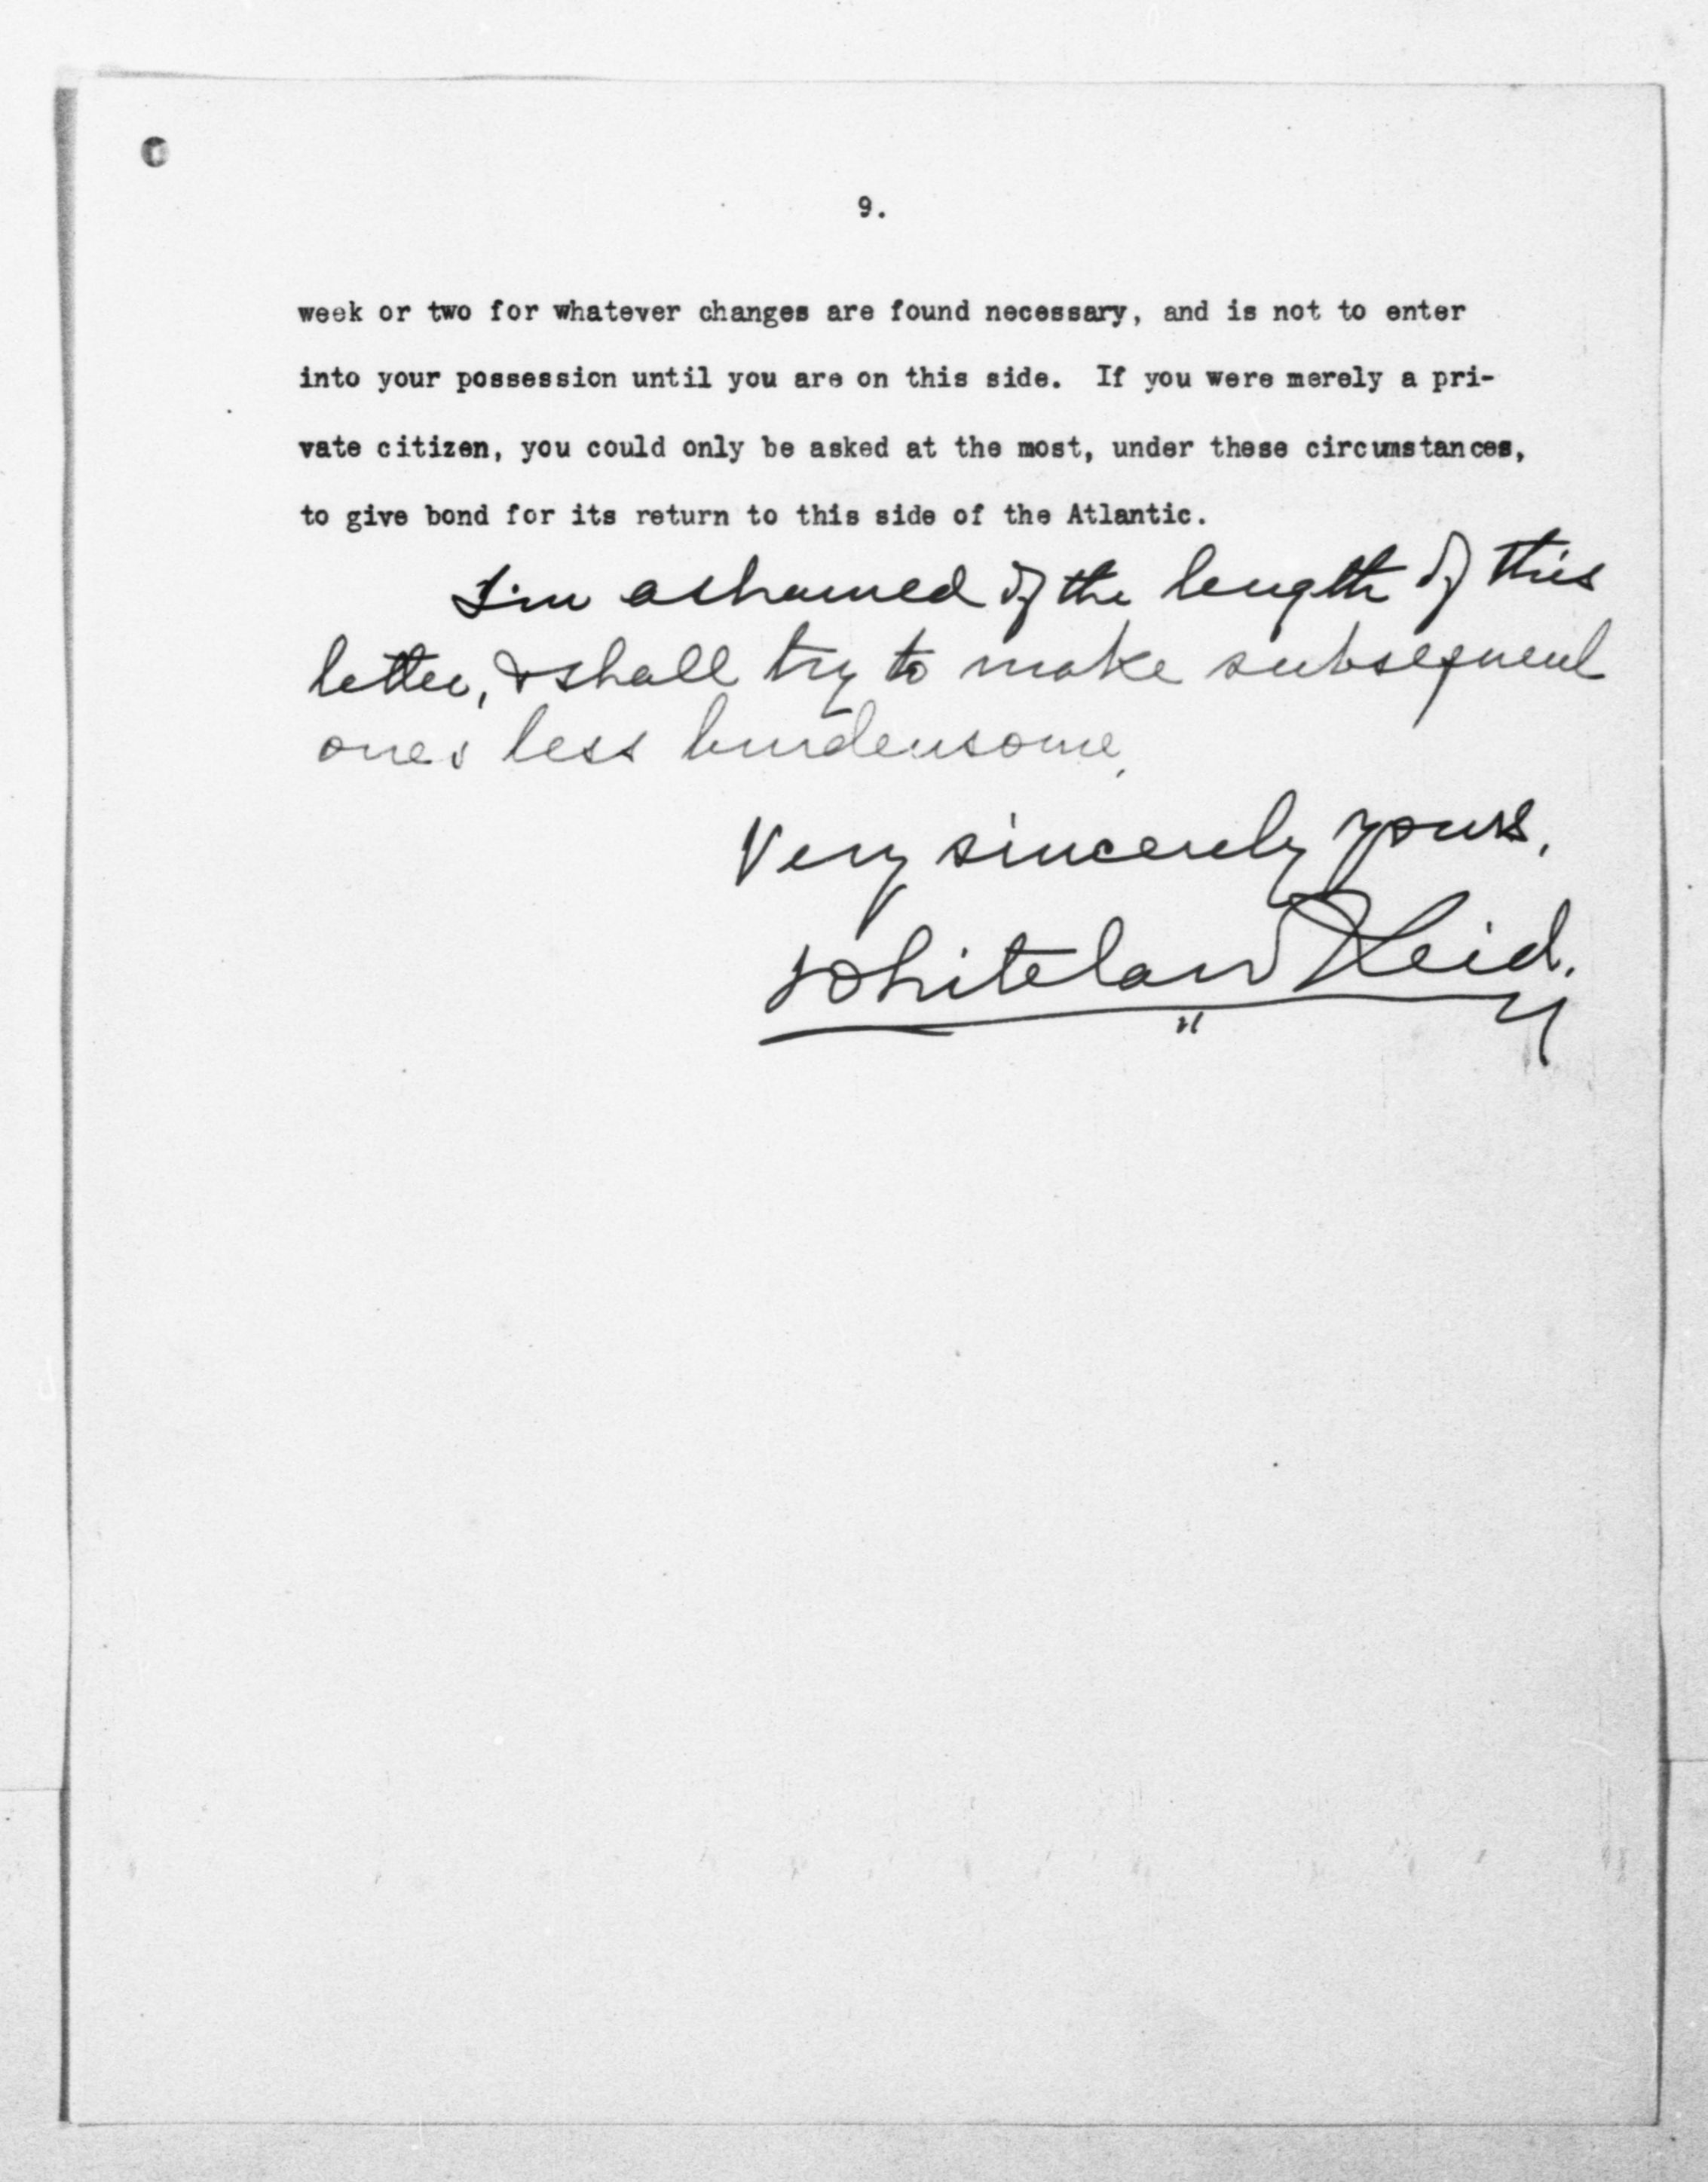 9.
week or two for whatever changes are found necessary, and is not to enter
into your possession until you are on this side. If you were merely a pri-
vate citizen, you could only be asked at the most, under these circumstances,
to give bond for its return to this side of the Atlantic.
I'm ashamed of the length of this
letter, & shall try to make subsequent
ones less burdensome.
Very sincerely yours,
Whitelaw Reid.